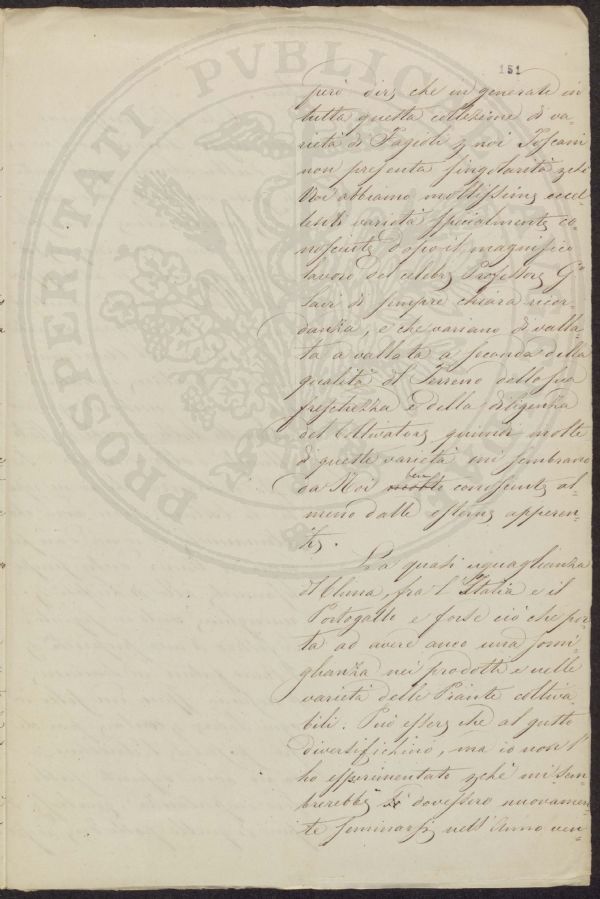 151
però dire che in generale in
tutta questa collezione di va-
rietà di Fagioli p noi Toscani
non presenta singolarità
Noi abbiamo moltissime eccel-
lenti varietà specialmente co-
nosciute dopo il magnifico
lavoro del celebre Professore Gº
Savi di sempre chiara ricor-
danza, e che variano di valla-
ta a vallata a seconda della
qualità del Terreno dello sua
freschezza e della diligenza
del Coltivatore quindi molte
di queste varietà mi sembrano
ben
da Noi molte conosciute al-
meno dalle esterne apparen-
ze.
La quasi uguaglianza
di Clima, fra l'Italia e il
Portogallo e forse ciò che por-
ta ad avere anco una somi-
glianza nei prodotti e nelle
varietà delle Piante coltiva-
bili. Può essere che al gusto
diversifichino, ma io non l'
ho esperimentato pchè mi sem-
brerebbe si dovessero nuovamen-
te seminarsi nell'Anno ven-
PROSPERITATI PVBLICAE